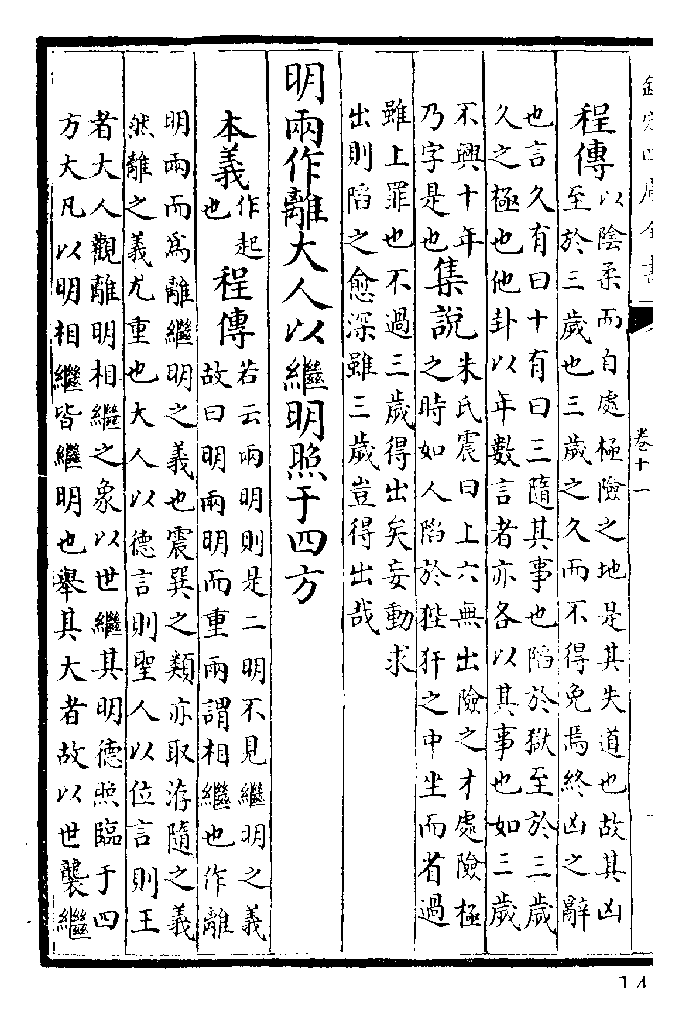 欽定四庫全書
卷十一
程傳
以陰柔而自處極險之地是其失道也故其凶
至於三歲也三歲之久而不得免焉終凶之辭
也言久有曰十有曰三隨其事也陷於獄至於三歲
久之極也他卦以年數言者亦各以其事也如三歲
不興十年
乃字是也
集說
朱氏震曰上六無出險之才處險極
之時如人陷於狴犴之中坐而省過
雖上罪也不過三歲得出矣妄動求
出則陷之愈深雖三歲豈得出哉
明兩作離大人以繼明照于四方
本義
作起
也
程傳
若云兩明則是二明不見繼明之義
故曰明兩明而重兩謂相繼也作離
明兩而為離繼明之義也震巽之類亦取洊隨之義
然離之義尤重也大人以德言則聖人以位言則王
者大人觀離明相繼之象以世繼其明德照臨于四
方大凡以明相繼皆繼明也舉其大者故以世襲繼